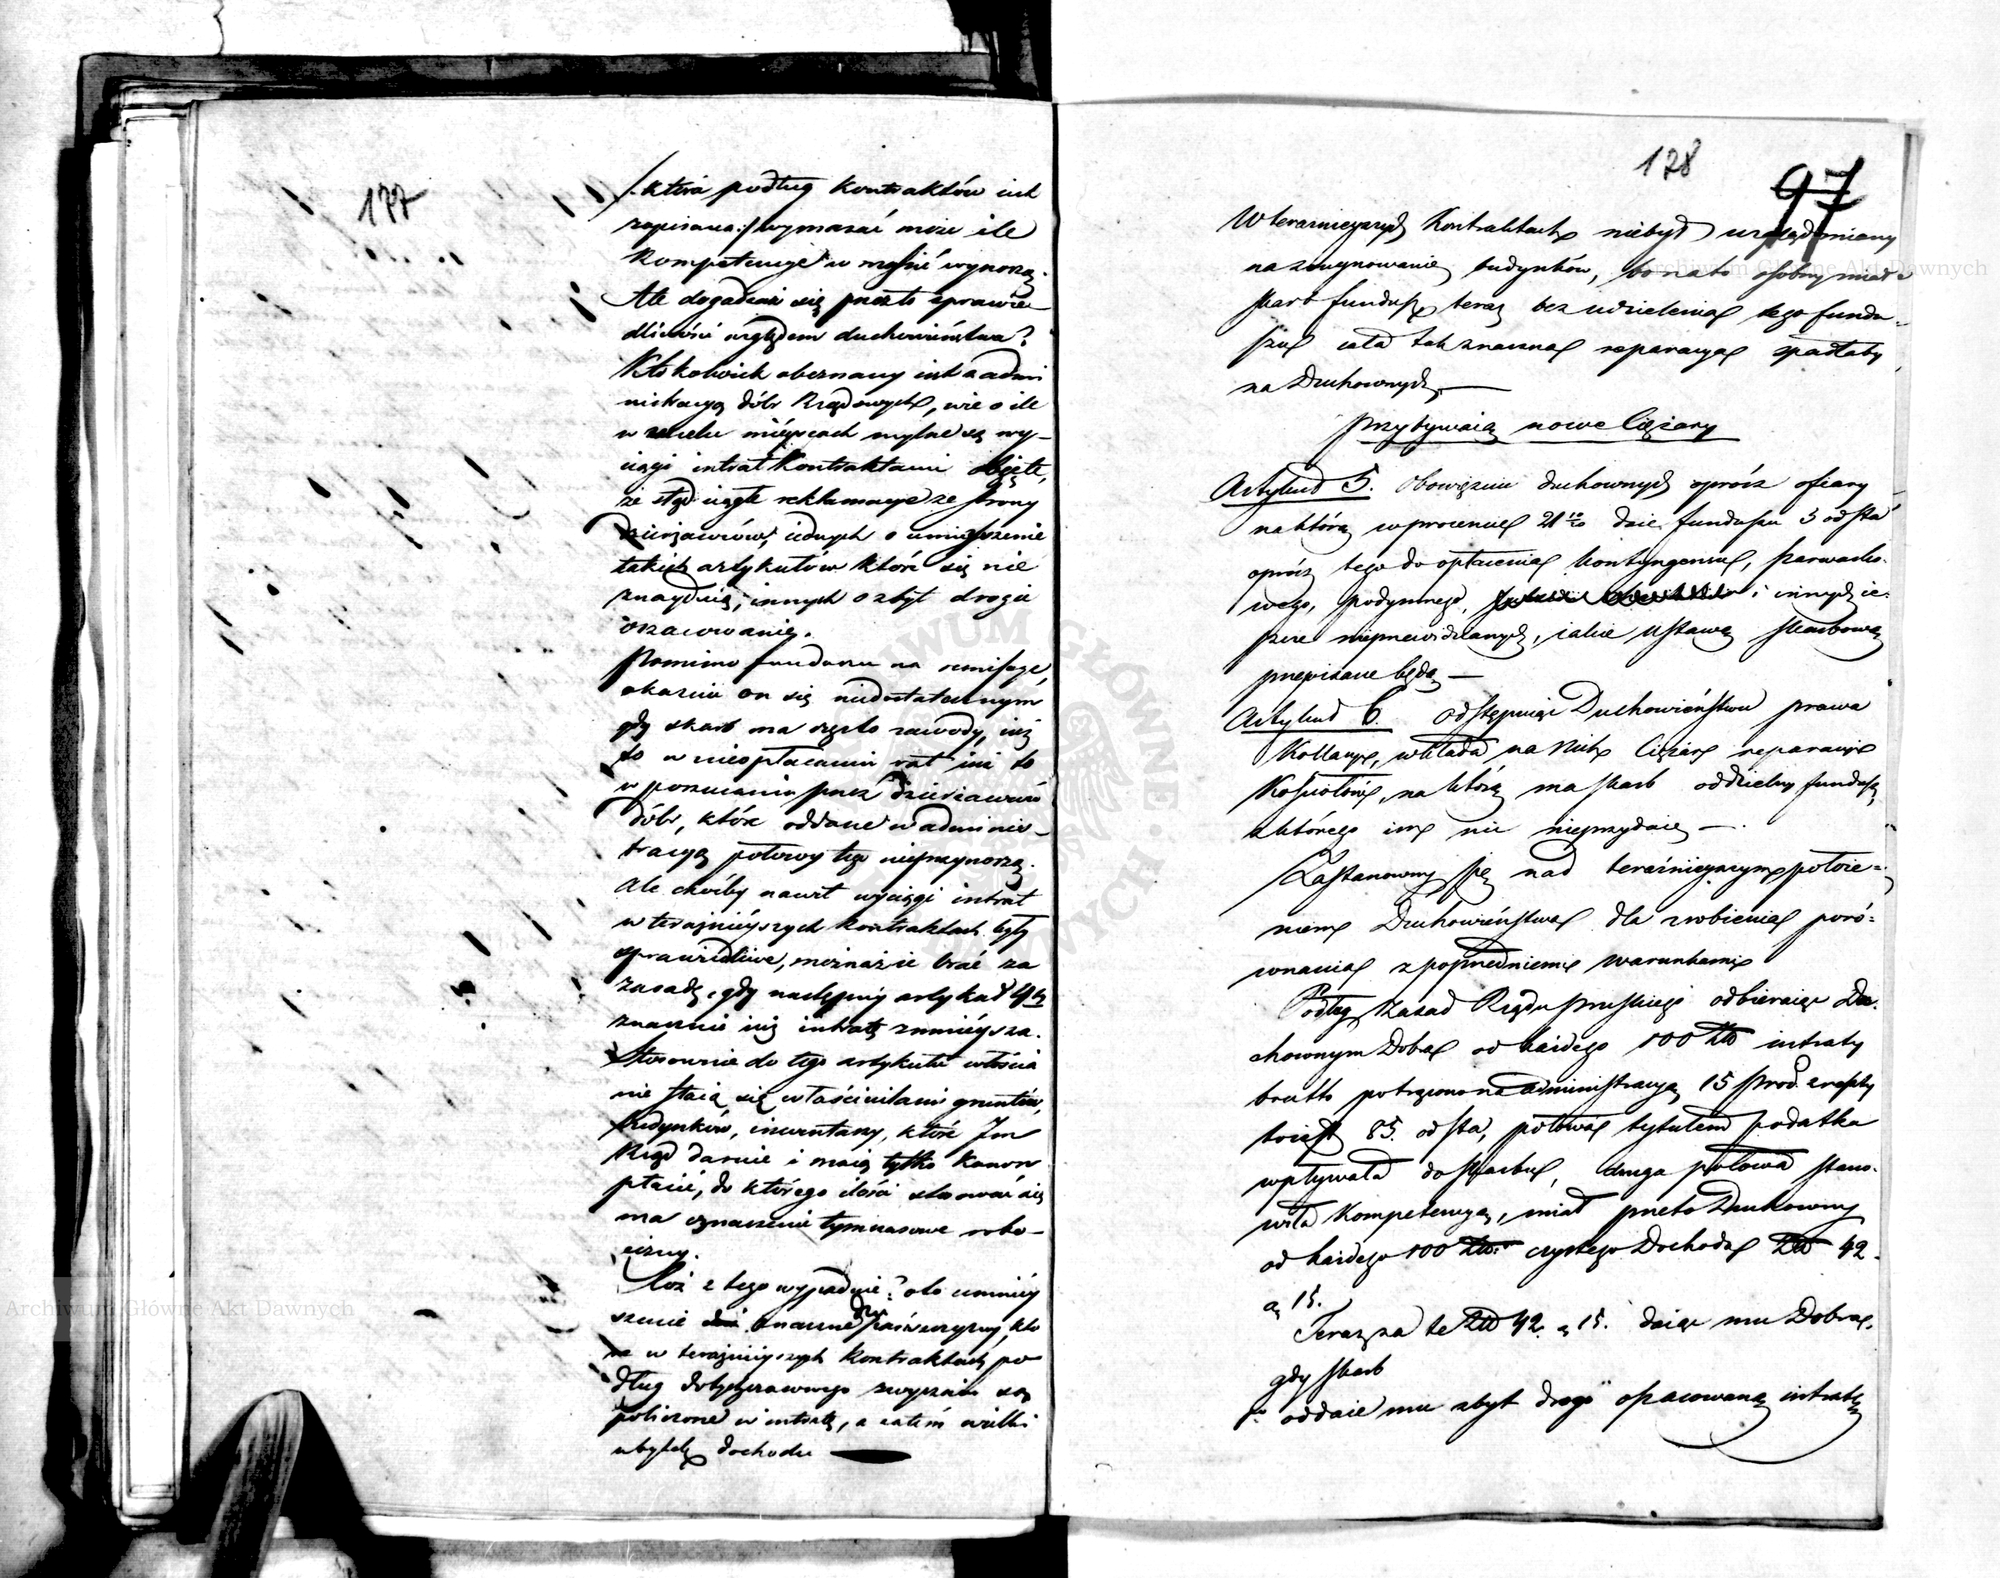 177
/:która podług kontraktów iest
zapisana:/ wymazać może ile
Kompetencye w massie wynoszą.
Ale dogadzasz się przeto sprawie-
dliwości względem duchowieństwa?
Ktokolwiek obeznany iest z admi
nistracyą dóbr Rządowych, wie o ile
w wielu mieyscach mylne są wy-
ciągi intrat Kontraktami objęte,
że ztąd ciągłe reklamacye ze strony
dzierżawców, iednych o umnieyszenie
takich artykułów które się nie
znayduią, innych o zbyt drogie
oszacowanie.
Pomimo funduszu na remissye,
okazuie on się niedostatecznym
gdy skarb ma często zawody, iuż
to w nieopłacaniu rat iuż to
w porzucaniu przez dzierżawców
dóbr, które oddane w adminis-
tracyą połowy tego nieprzynoszą.
Ale choćby nawet wyciągi intrat
w teraźnieyszych kontraktach były
sprawiedliwe, możnaż ie brać za
zasadę, gdy następny artykuł 4ty
znacznie iuż intratę zmnieysza.
Stosownie do tego artykułu włościa
nie staią się właścicielami gruntów,
budynków, inwentarzy, które Im
Rząd daruie i maią tylko Kanon
płacić, do którego ilości stosować się
ma oznaczenie tymczasowe robo-
cizny.
Cóż z tego wypadnie? oto umniey
szenie znaczne pańszczyzny, któ
ra w teraźnieyszych Kontraktach po
dług dotychczasowego zwyczaiu są
policzone w intratę, a zatém wielki
ubytek dochodu
128
97
W teraźnieyszych Kontraktach niebył uwzględniany
na zruynowanie budynków, bo na to osobny miał
skarb fundusz, teraz bez udzielenia tego fundu-
szu cała tak znaczna reparacya spadłaby
na Duchownych.
przybywaią nowe Ciężary
Artykuł 5. obowiązuie duchownych oprócz ofiary
na którą w procencie 21 dzie fundusz 5 od sta
oprócz tego do opłacenia kontyngensu, szarwarko-
wego, podymnego, i innych ie-
szcze nieprzewidzianych, iakie ustawą skarbową
przepisane będą —
Artykuł 6. odstępuiąc Duchowieństwu prawa
Kollacyi, wkłada na Nich Ciężar reparacyi
Kościołów, na którą ma skarb oddzielny fundusz
z którego im nic nieprzydaie —.
Zastanowmy się nad teraźnieyszym położe-
niem Duchowieństwa dla zrobienia poró-
wnania z poprzedniemi warunkami
Podług zasad Rządu pruskiego odbieraiąc Du-
chownym Dobra od każdego 100 Złt intraty
brutto potrącono na administracyą 15 prod. z reszty
toiest 85. od sta, połowa tytułem podatku
wpływała do skarbu, druga połowa stano-
wiła Kompetencyą, miał przeto Duchowny
od każdego 100 Złt. czystego Dochodu Złt 42.
g 15.
Teraz za te Złt 42. g 15. daiąc mu Dobra,
gdy skarb
1o oddaie mu zbyt drogo opacowaną intratę